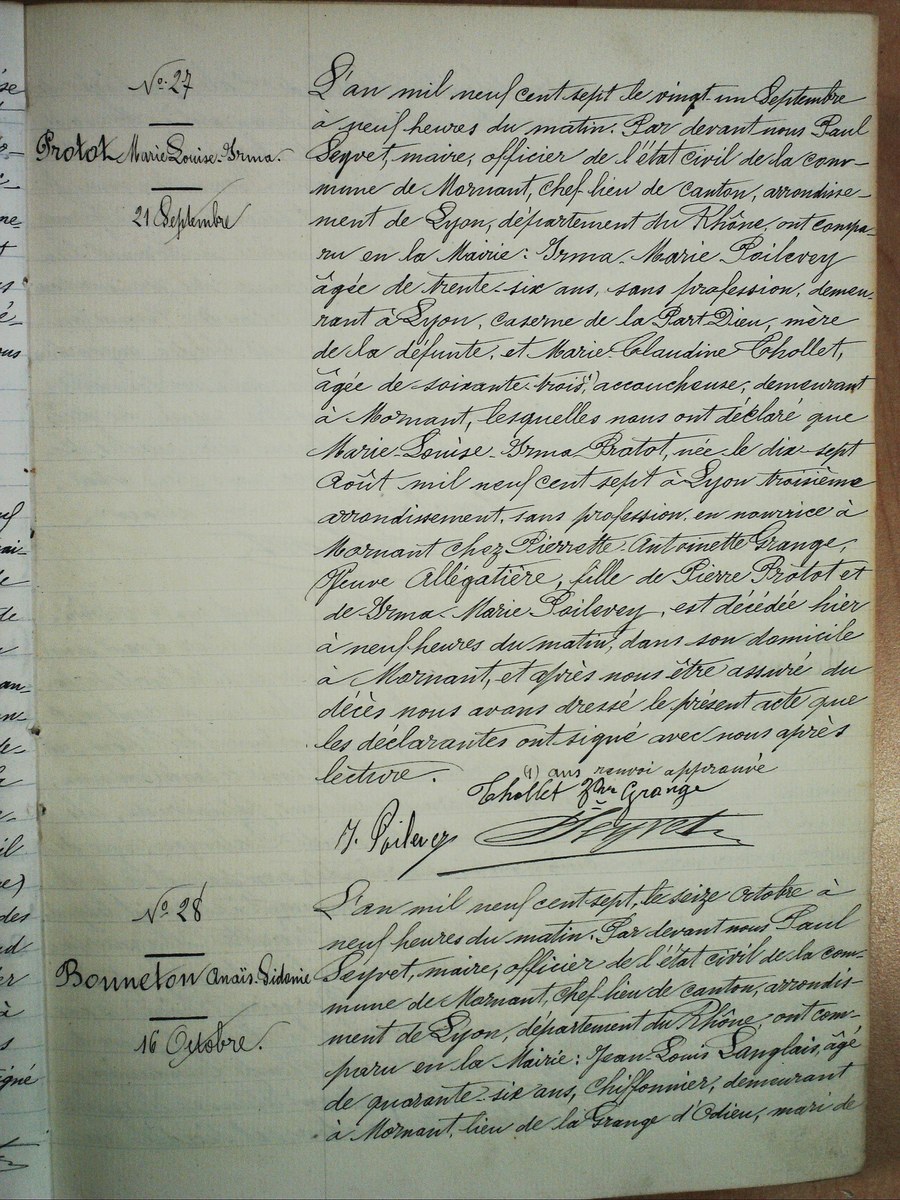 No. 27
Protot Marie Louise-Irma.
21 Septembre
L'an mil neuf cent sept le vingt-un Septembre
à neuf heures du matin. Par devant nous Paul
Seyvet, maire, officier de l'état civil de la com-
mune de Mornant, chef lieu de canton, arrondisse-
ment de Lyon, département du Rhône, ont compa-
ru en la Mairie: Irma-Marie Poilevey
âgée de trente-six ans, sans profession, demeu-
rant à Lyon, caserne de la Part Dieu, mère
de la défunte, et Marie-Claudine Thollet,
âgée de soixante-trois (1), accoucheuse, demeurant
à Mornant, lesquelles nous ont déclaré que
Marie-Louise-Irma Protot, née le dix-sept
Août mil neuf cent sept à Lyon troisième
arrondissement, sans profession, en nourrice à
Mornant chez Pierrette-Antoinette Grange,
Veuve Allégatière, fille de Pierre Protot et
de Irma-Marie Poilevey, est décédée hier
à neuf heures du matin, dans son domicile
à Mornant, et après nous être assuré du
décès nous avons dressé le présent acte que
les déclarantes ont signé avec nous après
lecture.
(1) ans renvoi approuvé
Thollet Grange
I. Poilevey Seyvet
No 28
Bonneton Anaïs-Sidonie
16 Octobre.
L'an mil neuf cent sept, le seize Octobre à
neuf heures du matin. Par devant nous Paul
Seyvet, maire, officier de l'état civil de la com-
mune de Mornant, chef lieu de canton, arrondis-
ment de Lyon, département du Rhône, ont com-
paru en la Mairie: Jean-Louis Langlais, âgé
de quarante-six ans, Chiffonnier, demeurant
à Mornant, lieu de la Grange d'Odieu, mari de